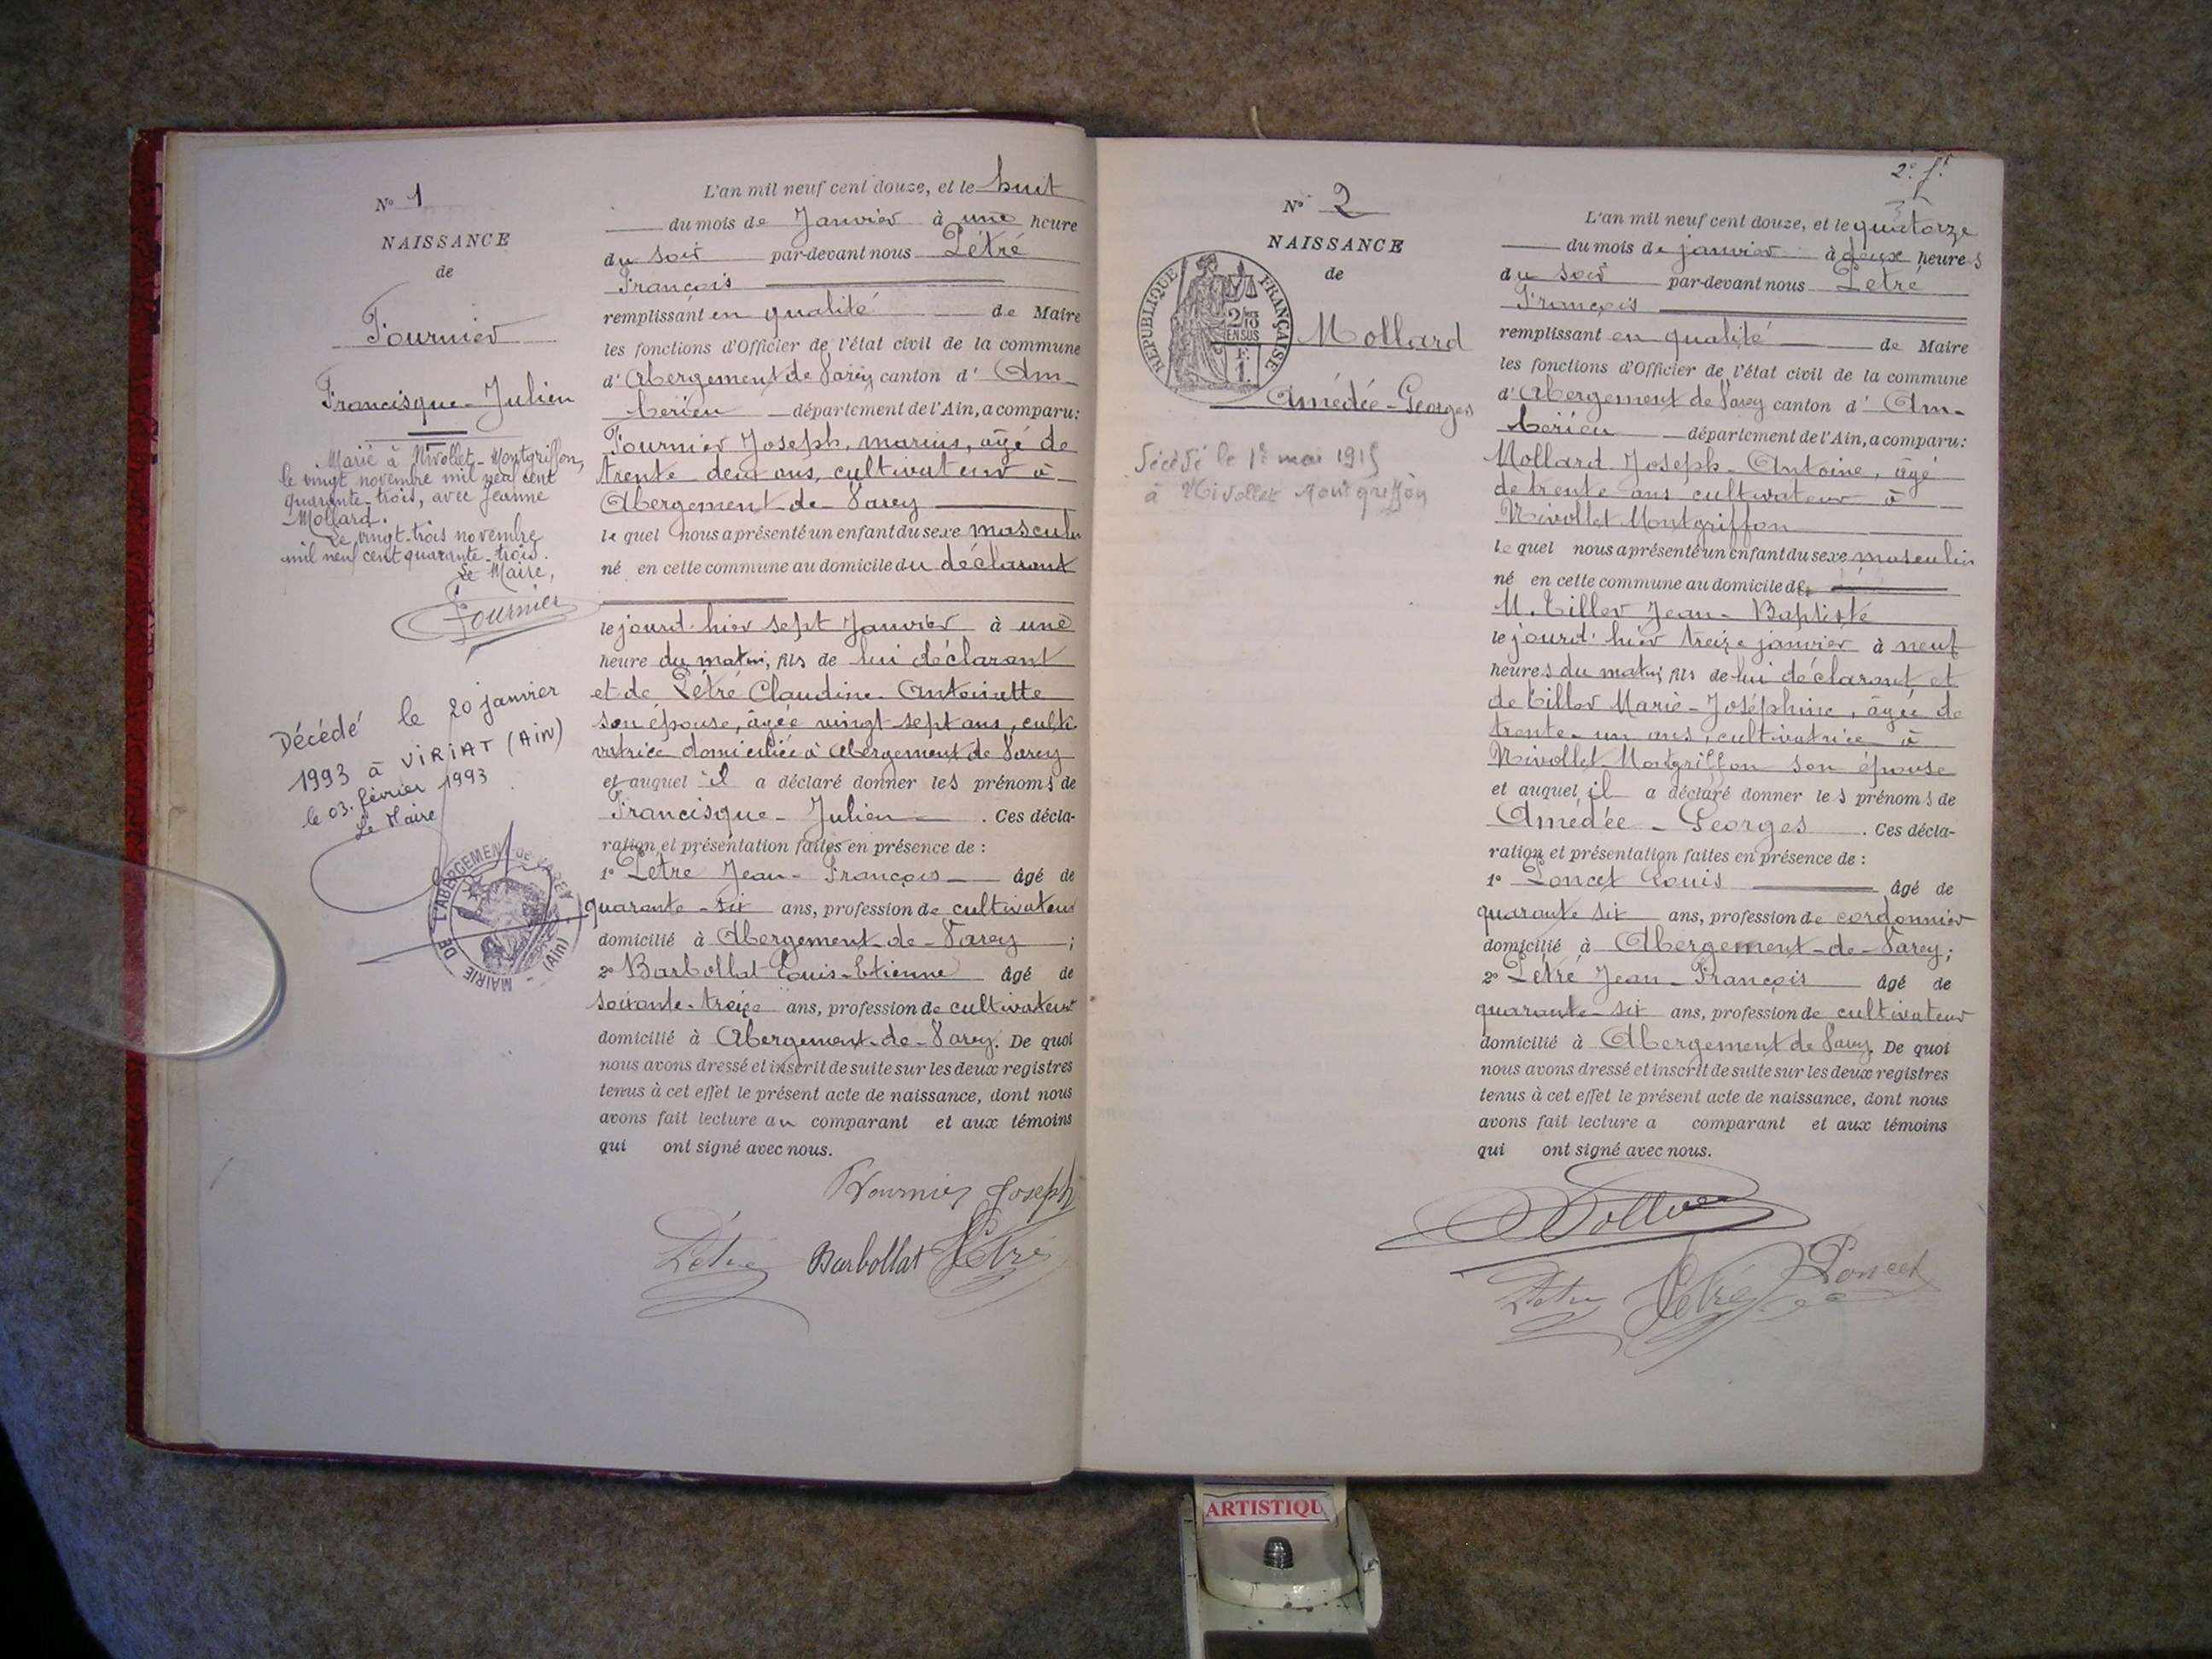 N° 1
NAISSANCE
de
Fournier
Francisque-Julien
Marié à Nivollet-Montgriffon,
le vingt novembre mil neuf cent
quarante-trois, avec Jeanne
Mollard.
Le vingt-trois novembre
mil neuf cent quarante-trois.
Le Maire,
Fournier
Décédé le 20 janvier
1993 à VIRIAT (Ain)
le 03 février 1993
Le Maire
MAIRIE DE L'ABERGEMENT DE VAREY (Ain)
L'an mil neuf cent douze, et le huit
du mois de Janvier à une heure
du soir par-devant nous Létré
François
remplissant en qualité de Maire
les fonctions d'Officier de l'état civil de la commune
d'Abergement de Varey canton d'Am-
bérieu département de l'Ain, a comparu:
Fournier Joseph, marius, âgé de
trente deux ans, cultivateur à
Abergement-de-Varey
lequel nous a présenté un enfant du sexe masculin
né en cette commune au domicile du déclarant
le jourd'hier sept Janvier à une
heure du matin, fils de lui déclarant
et de Létré Claudine-Antoinette
son épouse, âgée vingt-sept ans, culti-
vatrice domiciliée à Abergement de Varey
et auquel il a déclaré donner les prénoms de
Francisque-Julien. Ces décla-
ration et présentation faites en présence de :
1° Létré Jean-François âgé de
quarante-six ans, profession de cultivateur
domicilié à Abergement-de-Varey ;
2° Barbollat Louis-Etienne âgé de
soixante-treize ans, profession de cultivateur
domicilié à Abergement-de-Varey. De quoi
nous avons dressé et inscrit de suite sur les deux registres
tenus à cet effet le présent acte de naissance, dont nous
avons fait lecture au comparant et aux témoins
qui ont signé avec nous.
Fournier Joseph
Létré Barbollat Létré
2e f.
N° 2
NAISSANCE
de
REPUBLIQUE FRANÇAISE
2/10 EN SUS
1 F.
Mollard
Amédée-Georges
Décédé le 1er mai 1915
à Nivollet Montgriffon
L'an mil neuf cent douze, et le quatorze
du mois de janvier à deux heures
du soir par-devant nous Létré
François
remplissant en qualité de Maire
les fonctions d'Officier de l'état civil de la commune
d'Abergement de Varey canton d'Am-
bérieu département de l'Ain, a comparu:
Mollard Joseph-Antoine, âgé
de trente ans cultivateur à
Nivollet Montgriffon
lequel nous a présenté un enfant du sexe masculin
né en cette commune au domicile de
M. Tiller Jean-Baptiste
le jourd'hier treize janvier à neuf
heures du matin, fils de lui déclarant et
de Tiller Marie-Joséphine, âgée de
trente-un ans, cultivatrice à
Nivollet-Montgriffon son épouse
et auquel il a déclaré donner les prénoms de
Amédée-Georges. Ces décla-
ration et présentation faites en présence de :
1° Poncet Louis âgé de
quarante six ans, profession de cordonnier
domicilié à Abergement-de-Varey;
2° Létré Jean-François âgé de
quarante-six ans, profession de cultivateur
domicilié à Abergement de Varey. De quoi
nous avons dressé et inscrit de suite sur les deux registres
tenus à cet effet le présent acte de naissance, dont nous
avons fait lecture a comparant et aux témoins
qui ont signé avec nous.
Létré Létré Poncet
ARTISTIQU